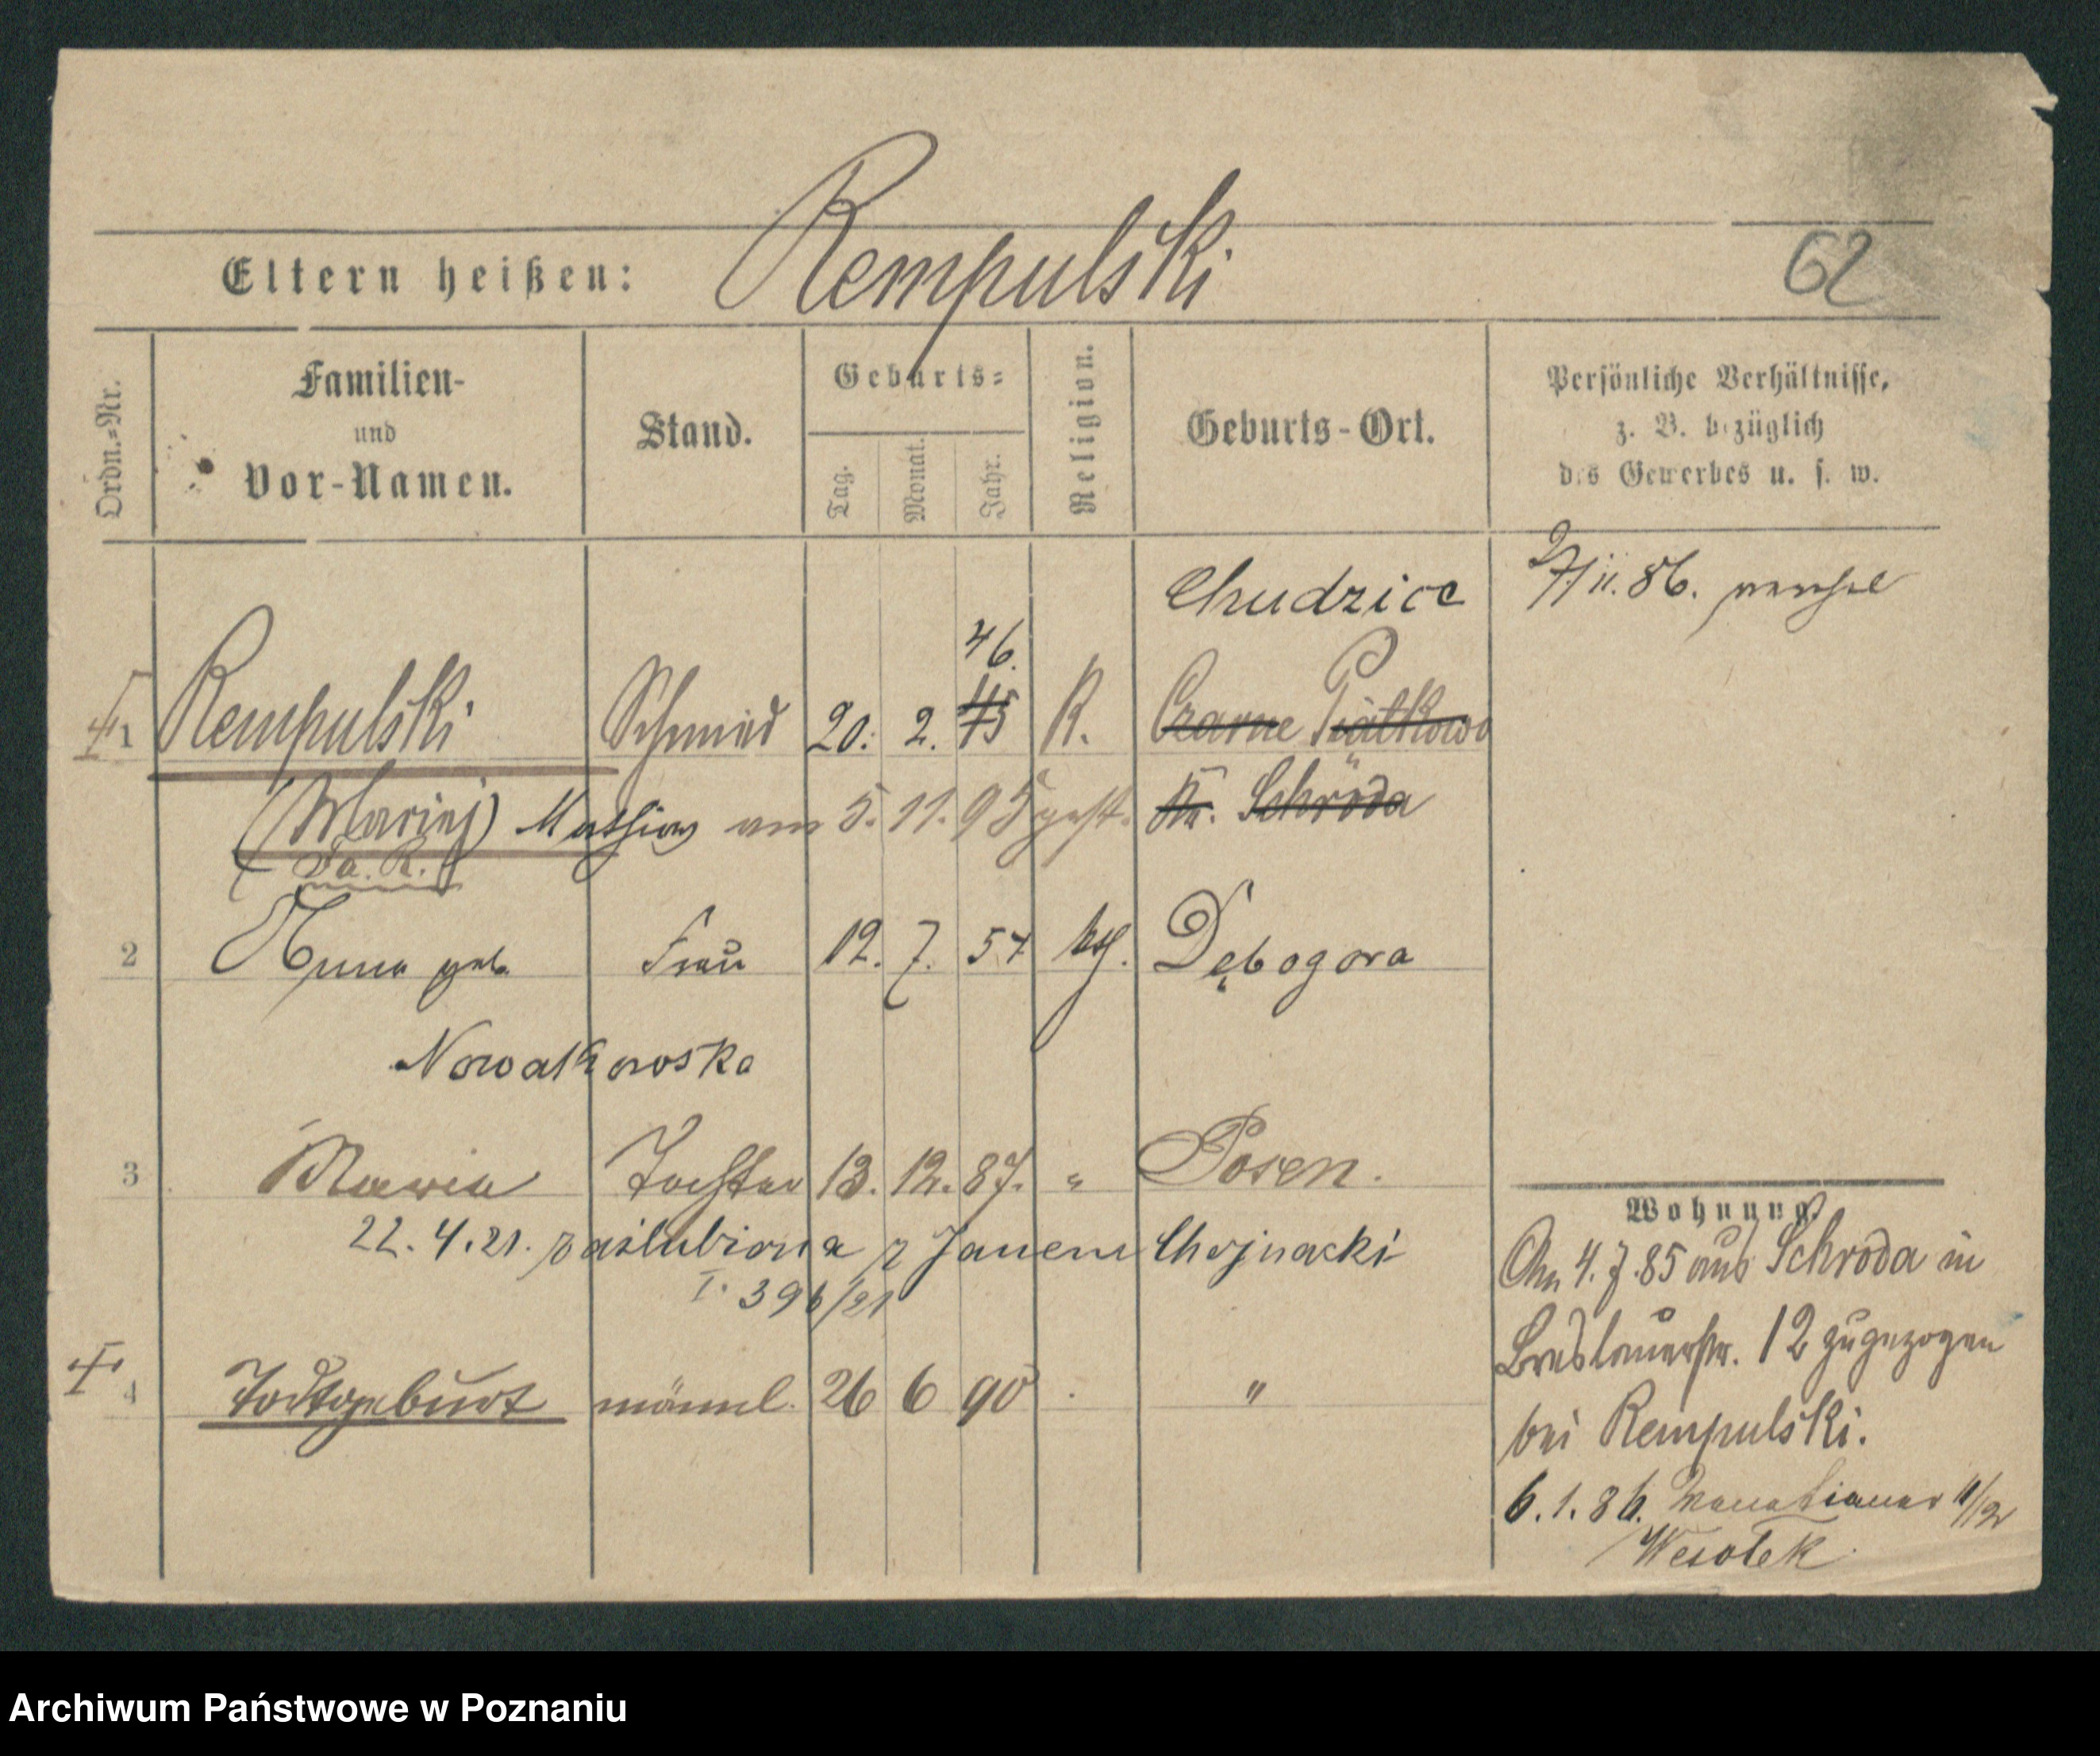 Rempulski
Eltern heißen:
62
Ordn.=Nr.
Familien-
und
Vor-Namen.
Stand.
Geburts=
Tag.
Monat.
Jahr.
Religion.
Geburts-Ort.
Persönliche Verhältnisse,
z. B. bezüglich
des Gewerbes u. s. w.
Chudzice
46.
1 Rempulski Schmied 20. 2. 45 K. Czarne Piątkowo
(Maciej) Mathias am 5. 11. 95 gest. Kr. Schroda
Fa. R.
2 Anna geb. Frau 12. 7. 57 kth. Dębogora
Nowakowska
3 Maria Tochter 13. 12. 87. " Posen.
22. 4. 21. zaślubiona z Janem Chojnacki
I. 396/21
4 Todtgeburt männl. 26 6 90 "
Wohnung.
Am 4. 7. 85 aus Schroda in
Breslauerstr. 12 zugezogen
bei Rempulski.
6. 1. 86.
Wesołek
Archiwum Państwowe w Poznaniu